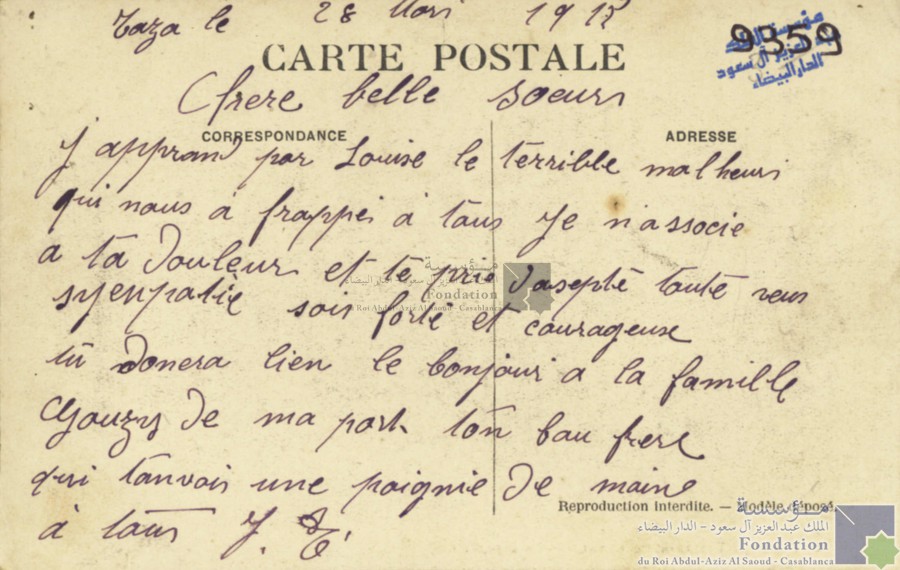 Taza le 28 Mars 191
9359
مؤسسة الملك
عبد العزيز آل سعود
الدار البيضاء
CARTE POSTALE
Chere belle soeurs
CORRESPONDANCE
ADRESSE
J appran par Louise le terrible malheurs
qui nous a frappei à tous Je n'associe
a ta Douleur et te prie d'asepté touté
syenpatie sois forté et courageuse
tu donera bien le bonjour a la famille
de ma part ton bau frere
qui tanvois une poignie de maine
à tous J. T.
Reproduction interdite. — Modèle déposé.
مؤسسة
الملك عبد العزيز آل سعود - الدار البيضاء
Fondation
du Roi Abdul-Aziz Al Saoud - Casablanca
مؤسسة
الملك عبد العزيز آل سعود - الدار البيضاء
Fondation
du Roi Abdul-Aziz Al Saoud - Casablanca